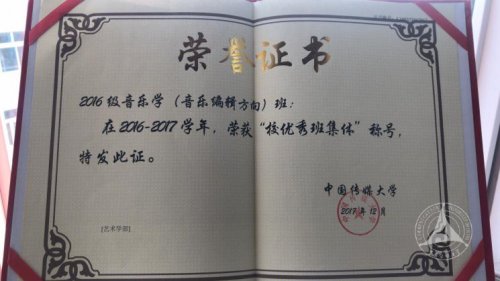 荣誉证书
2016级音乐学（音乐编辑方向）班：
在2016-2017学年，荣获“校优秀班集体”称号，
特发此证。
中国传媒大学
2017年12月
[艺术学部]